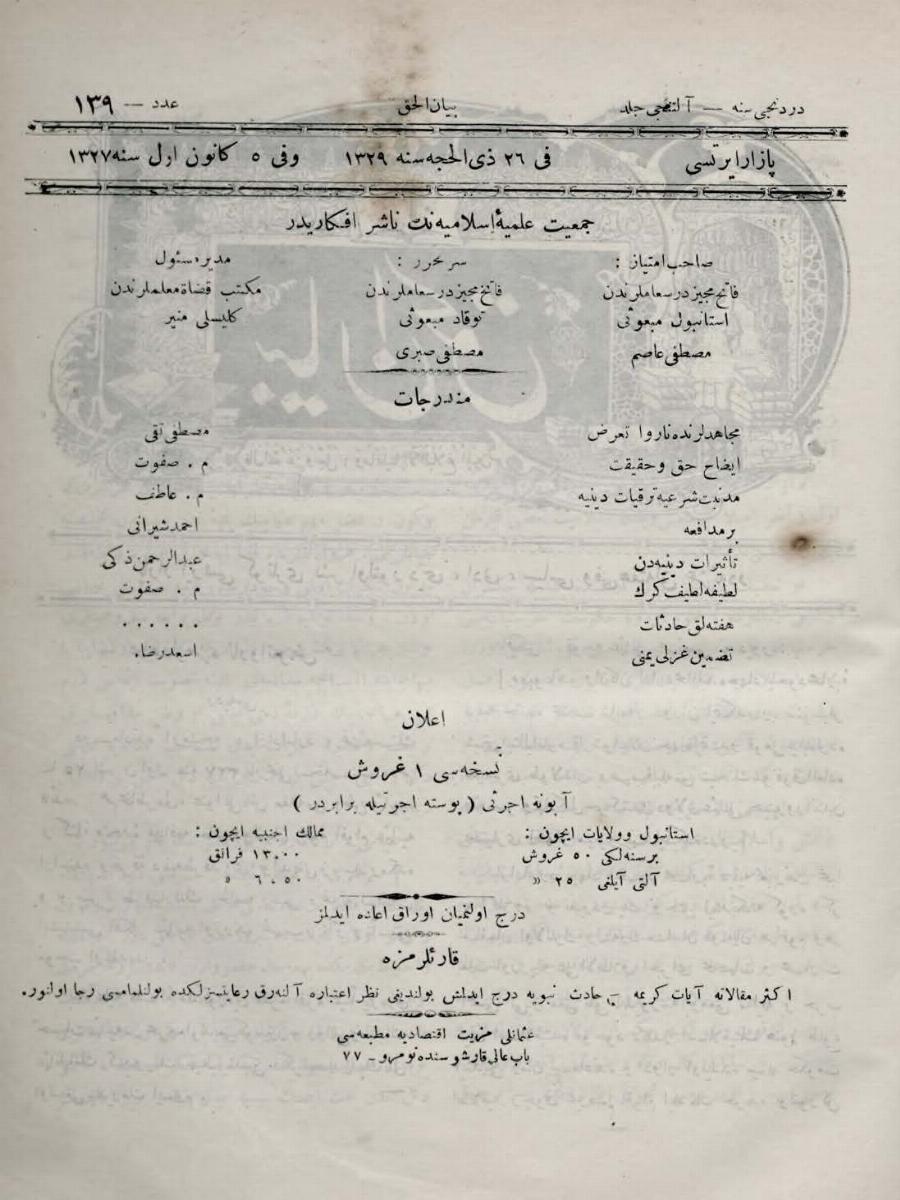 دردنجی سنه — آلتنجی جلد
بیان الحق
عدد — ١٣٩
پازار ایرتسی
فی ٢٦ ذی الحجه سنه ١٣٢٩
وفی ٥ کانون اول سنه ١٣٢٧
جمعیت علمیهٔ اسلامیه نك ناشر افکاریدر
صاحب امتیاز :
فاتح مجیز درسعاملرندن
استانبول مبعوثی
مصطفی عاصم
سرمحرر :
فاتح مجیز درسعاملرندن
توقاد مبعوثی
مصطفی صبری
مدیر مسئول
مکتب قضاة معلملرندن
کلیسلی منیر
مندرجات
مجاهدلرنده ناروا تعرض مصطفی تقی
ایضاح حق وحقیقت م . صفوت
مدنیت شرعیه ترقیات دینیه م . عاطف
برمدافعه احمد شیرانی
تأثیرات دینیه دن عبدالرحمن ذکی
لطیفه لطیف کرك م . صفوت
هفته لق حادثات . . . . . .
تضمین غزلی یمنی اسعد رضا.
اعلان
نسخه سی ١ غروش
آبونه اجرتی ( پوسته اجرتیله برابردر )
استانبول وولایات ایچون :
برسنه لکی ٥٠ غروش
آلتی آیلغی ٢٥ »
ممالك اجنبیه ایچون :
١٣٫٠٠ فرانق
٦٫٥٠ »
درج اولنمیان اوراق اعاده ایدلمز
قارئلرمزه
اکثر مقالاته آیات کریمه حادث نبویه درج ایدلمش بولندیغی نظر اعتباره آلنه رق رعایتسزلکده بولنلمامسی رجا اولنور.
عثمانلی مشریت اقتصادیه مطبعه سی
باب عالی قارشوسنده نومرو - ٧٧